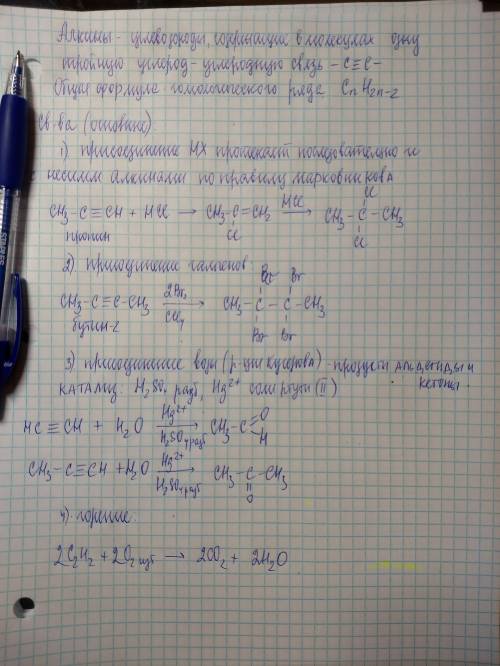 Алкины - углеводороды, содержащие в молекулах одну
тройную углерод-углеродную связь -C≡C-
Общая формула гомологического ряда CnH2n-2
Св-ва (основные)
1) присоединение HX протекает последовательно
несимм алкинами по правилу марковникова
CH3-C≡CH + HCl → CH3-C=CH2 HCl → CH3-C-CH3
Cl
Cl
Cl
пропин
2) присоединение галогенов
CH3-C≡C-CH3 2Br2 CCl4 → CH3-C-C-CH3
Br Br
Br Br
бутин-2
3) присоединение воды (р-ция кучерова) - продукты альдегиды и
кетоны
катализ: H2SO4 разб, Hg2+ соли ртути (II)
HC≡CH + H2O Hg2+ H2SO4 разб → CH3-C=O H
CH3-C≡CH + H2O Hg2+ H2SO4 разб → CH3-C-CH3
O
4) горение:
2C2H2 + 2O2 → 2CO2 + 2H2O